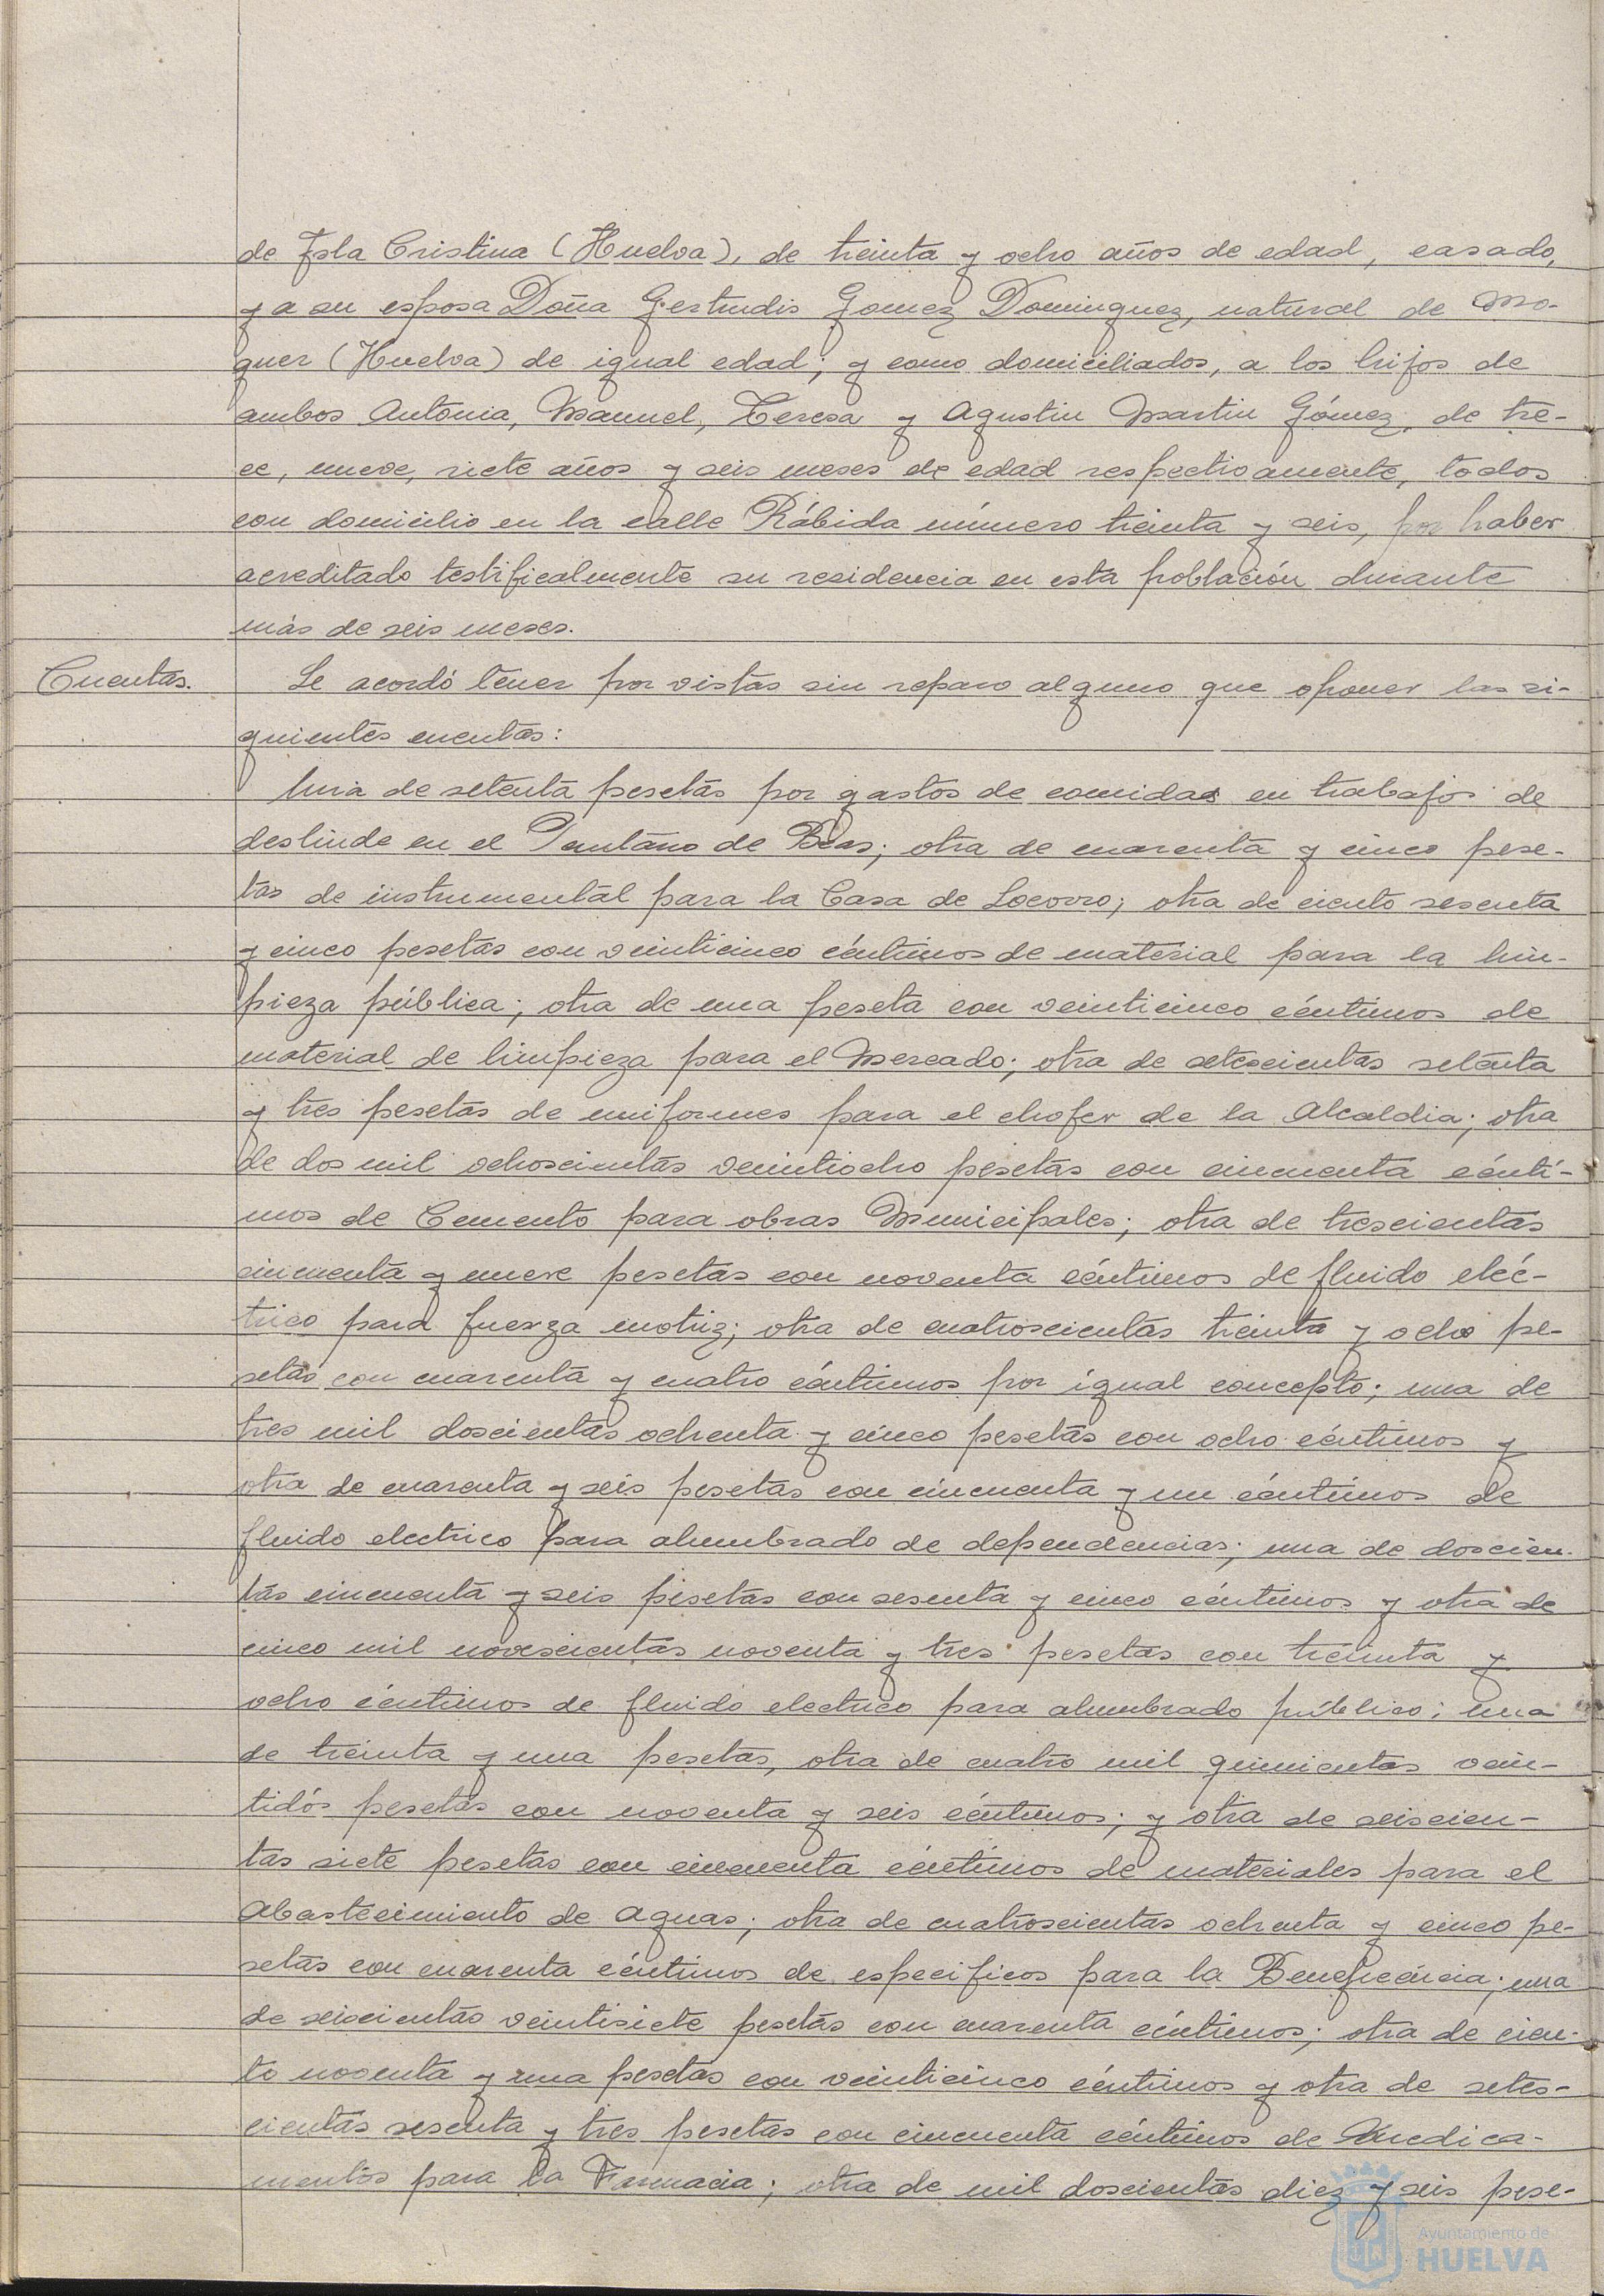 de Isla Cristina (Huelva), de treinta y ocho años de edad, casado,
y a su esposa Doña Gertrudis Gomez Dominguez, natural de Mo-
guer (Huelva) de igual edad; y como domiciliados, a los hijos de
ambos Antonia, Manuel, Teresa y Agustin Martin Gómez, de tre-
ce, nueve, siete años y seis meses de edad respectivamente, todos
con domicilio en la calle Rábida número treinta y seis, por haber
acreditado testificalmente su residencia en esta población durante
más de seis meses.
Cuentas.
Se acordó tener por vistas sin reparo alguno que oponer las si-
guientes cuentas:
Una de setenta pesetas por gastos de comidas en trabajos de
deslinde en el Pantano de Beas; otra de cuarenta y cinco pese-
tas de instrumental para la Casa de Socorro; otra de ciento sesenta
y cinco pesetas con veinticinco céntimos de material para la lim-
pieza pública; otra de una peseta con veinticinco céntimos de
material de limpieza para el Mercado; otra de setescientas setenta
y tres pesetas de uniformes para el chofer de la Alcaldia; otra
de dos mil ochoscientas veintiocho pesetas con cincuenta cénti-
mos de Cemento para obras Municipales; otra de trescientas
cincuenta y nueve pesetas con noventa céntimos de fluido eléc-
trico para fuerza motriz; otra de cuatroscientas treinta y ocho pe-
setas con cuarenta y cuatro céntimos por igual concepto; una de
tres mil doscientas ochenta y cinco pesetas con ocho céntimos y
otra de cuarenta y seis pesetas con cincuenta y un céntimos de
fluido electrico para alumbrado de dependencias; una de doscien-
tas cincuenta y seis pesetas con sesenta y cinco céntimos y otra de
cinco mil novescientas noventa y tres pesetas con treinta y
ocho céntimos de fluido electrico para alumbrado público; una
de treinta y una pesetas, otra de cuatro mil quinientas vein-
tidós pesetas con noventa y seis céntimos; y otra de seiscien-
tas siete pesetas con cincuenta céntimos de materiales para el
Abastecimiento de Aguas; otra de cuatroscientas ochenta y cinco pe-
setas con cuarenta céntimos de especificos para la Beneficencia; una
de seiscientas veintisiete pesetas con cuarenta céntimos; otra de cien-
to noventa y una pesetas con veinticinco céntimos y otra de setes-
cientas sesenta y tres pesetas con cincuenta céntimos de Medica-
mentos para la Farmacia; otra de mil doscientas diez y seis pese-
Ayuntamiento de
HUELVA